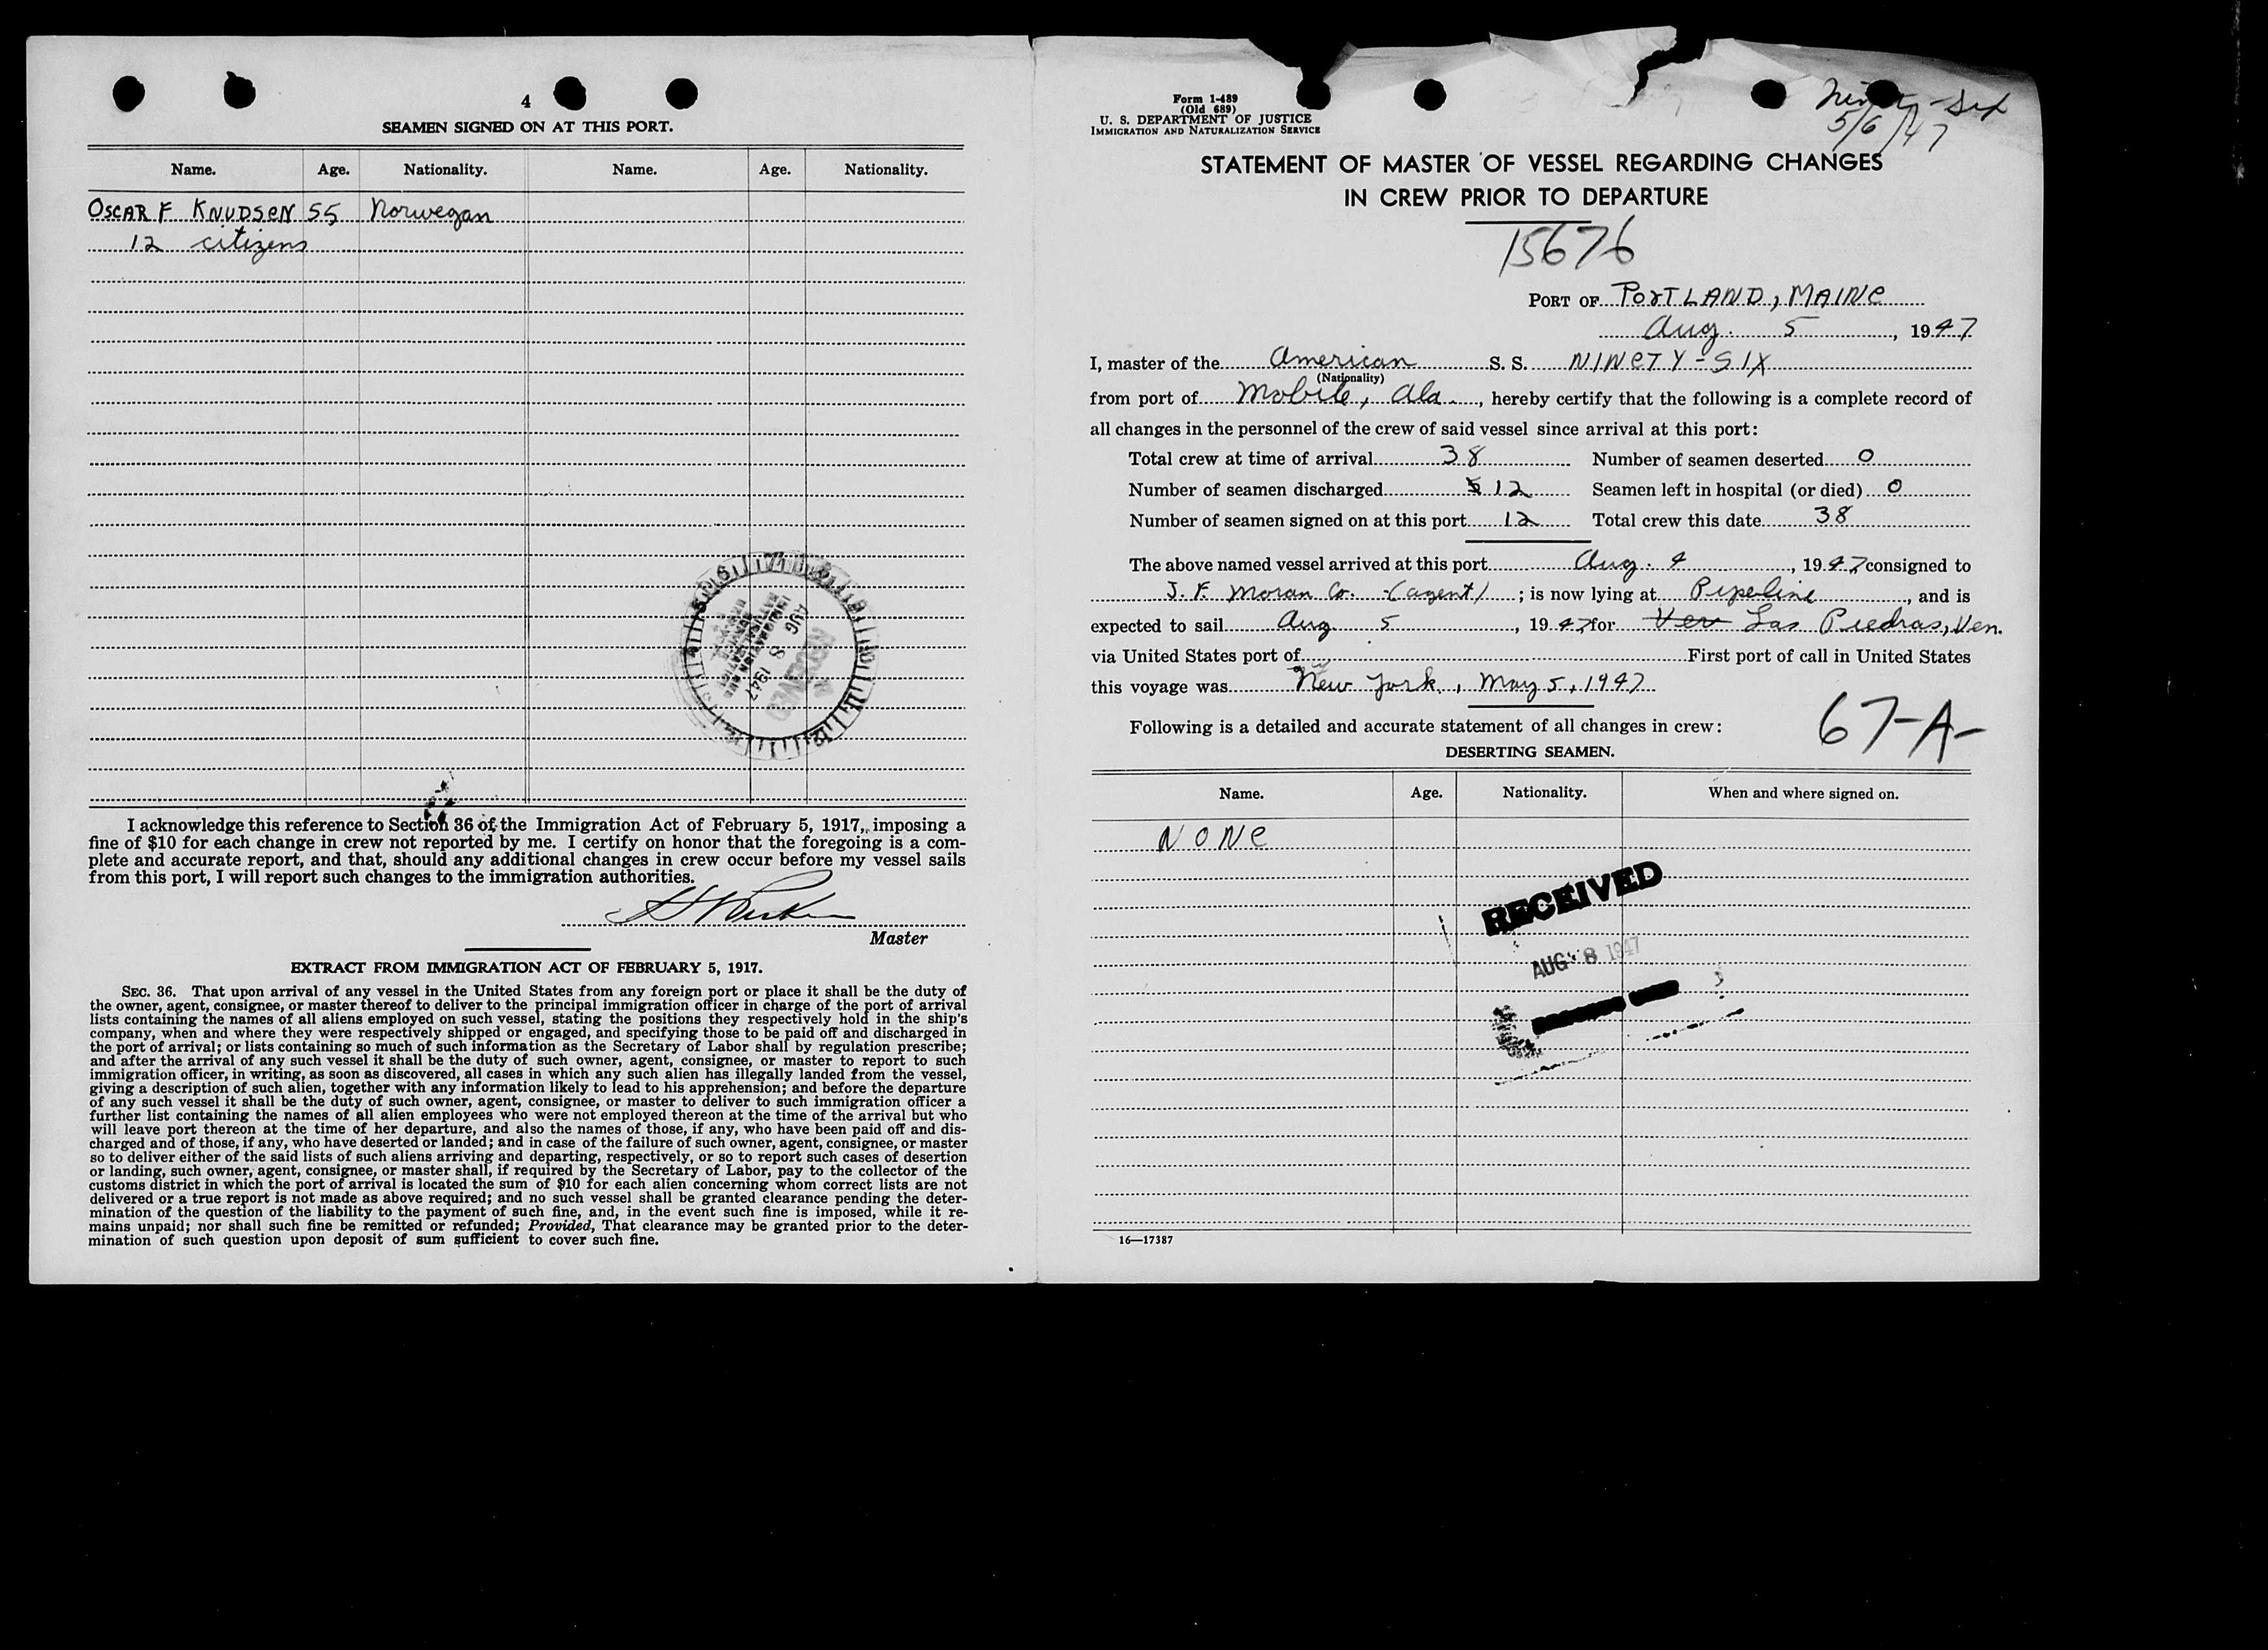 4
SEAMEN SIGNED ON AT THIS PORT.
Name. Age. Nationality. Name. Age. Nationality.
OSCAR F KNUDSEN 55 Norwegan
12 citizens
AUG 8 1947
RECEIVED
I acknowledge this reference to Section 36 of the Immigration Act of February 5, 1917, imposing a
fine of $10 for each change in crew not reported by me. I certify on honor that the foregoing is a com-
plete and accurate report, and that, should any additional changes in crew occur before my vessel sails
from this port, I will report such changes to the immigration authorities.
Master
EXTRACT FROM IMMIGRATION ACT OF FEBRUARY 5, 1917.
SEC. 36. That upon arrival of any vessel in the United States from any foreign port or place it shall be the duty of
the owner, agent, consignee, or master thereof to deliver to the principal immigration officer in charge of the port of arrival
lists containing the names of all aliens employed on such vessel, stating the positions they respectively hold in the ship's
company, when and where they were respectively shipped or engaged, and specifying those to be paid off and discharged in
the port of arrival; or lists containing so much of such information as the Secretary of Labor shall by regulation prescribe;
and after the arrival of any such vessel it shall be the duty of such owner, agent, consignee, or master to report to such
immigration officer, in writing, as soon as discovered, all cases in which any such alien has illegally landed from the vessel,
giving a description of such alien, together with any information likely to lead to his apprehension; and before the departure
of any such vessel it shall be the duty of such owner, agent, consignee, or master to deliver to such immigration officer a
further list containing the names of all alien employees who were not employed thereon at the time of the arrival but who
will leave port thereon at the time of her departure, and also the names of those, if any, who have been paid off and dis-
charged and of those, if any, who have deserted or landed; and in case of the failure of such owner, agent, consignee, or master
so to deliver either of the said lists of such aliens arriving and departing, respectively, or so to report such cases of desertion
or landing, such owner, agent, consignee, or master shall, if required by the Secretary of Labor, pay to the collector of the
customs district in which the port of arrival is located the sum of $10 for each alien concerning whom correct lists are not
delivered or a true report is not made as above required; and no such vessel shall be granted clearance pending the deter-
mination of the question of the liability to the payment of such fine, and, in the event such fine is imposed, while it re-
mains unpaid; nor shall such fine be remitted or refunded; Provided, That clearance may be granted prior to the deter-
mination of such question upon deposit of sum sufficient to cover such fine.
Form I-489
(Old 689)
U. S. DEPARTMENT OF JUSTICE
IMMIGRATION AND NATURALIZATION SERVICE
Ninety-Six
5/6/47
STATEMENT OF MASTER OF VESSEL REGARDING CHANGES
IN CREW PRIOR TO DEPARTURE
15676
PORT OF PORTLAND, MAINE
Aug. 5, 1947
I, master of the American S. S. NINETY-SIX
(Nationality)
from port of Mobile, Ala., hereby certify that the following is a complete record of
all changes in the personnel of the crew of said vessel since arrival at this port:
Total crew at time of arrival 38 Number of seamen deserted 0
Number of seamen discharged 12 Seamen left in hospital (or died) 0
Number of seamen signed on at this port 12 Total crew this date 38
The above named vessel arrived at this port Aug. 4, 1947 consigned to
J. F. Moran Co. (agent); is now lying at Pipeline, and is
expected to sail Aug 5, 1947 for Ven Las Piedras, Ven.
via United States port of First port of call in United States
this voyage was New York, May 5, 1947
Following is a detailed and accurate statement of all changes in crew:
67-A-
DESERTING SEAMEN.
Name. Age. Nationality. When and where signed on.
NONE
RECEIVED
AUG 8 1947
16—17387